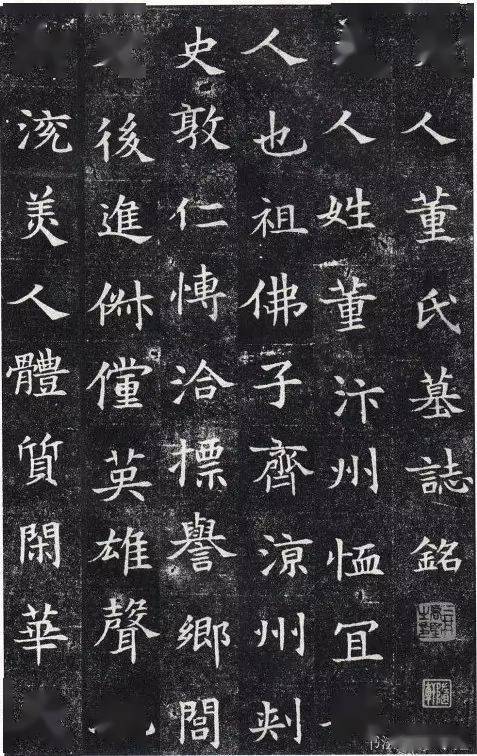 人董氏墓誌銘
人姓董汴州恤冝
人也祖佛子齊涼州刾
史敦仁愽洽摽譽鄉閭
後進俶儻英雄聲
流美人體質閑華